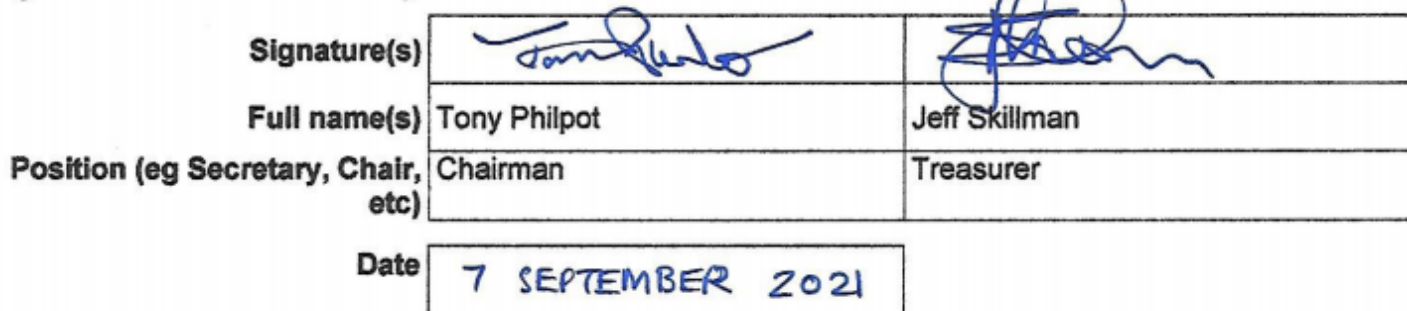 Signature(s)
Full name(s) Tony Philpot Jeff Skillman
Position (eg Secretary, Chair, Chairman Treasurer
etc)
Date 7 SEPTEMBER 2021